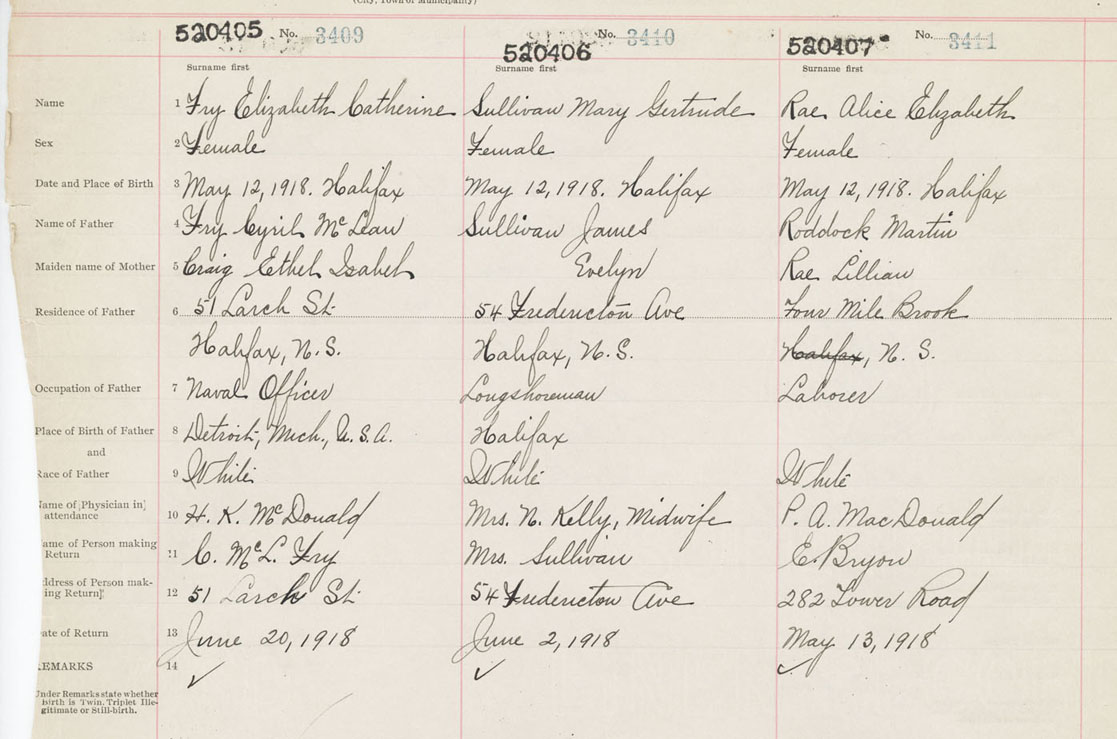 (City, Town or Municipality)
520405 No. 3409 520406 No. 3410 520407 No. 3411
Surname first Surname first Surname first
Name 1 Fry Elizabeth Catherine Sullivan Mary Gertrude Rae Alice Elizabeth
Sex 2 Female Female Female
Date and Place of Birth 3 May 12, 1918. Halifax May 12, 1918. Halifax May 12, 1918. Halifax
Name of Father 4 Fry Cyril McLean Sullivan James Roddock Martin
Maiden name of Mother 5 Craig Ethel Isabel Evelyn Rae Lillian
Residence of Father 6 51 Larch St. 54 Fredericton Ave Four Mile Brook
Halifax, N.S. Halifax, N.S. Halifax, N.S.
Occupation of Father 7 Naval Officer Longshoreman Laborer
Place of Birth of Father 8 Detroit, Mich., U.S.A. Halifax
and
Race of Father 9 White White White
Name of Physician in
attendance 10 H. K. McDonald Mrs. N. Kelly, Midwife P. A. MacDonald
Name of Person making
Return 11 C. McL. Fry Mrs. Sullivan E. Bryon
Address of Person mak-
ing Return 12 51 Larch St. 54 Fredericton Ave 282 Tower Road
Date of Return 13 June 20, 1918 June 2, 1918 May 13, 1918
REMARKS 14 ✓ ✓ ✓
Under Remarks state whether
birth is Twin. Triplet Ille-
gitimate or Still-birth.